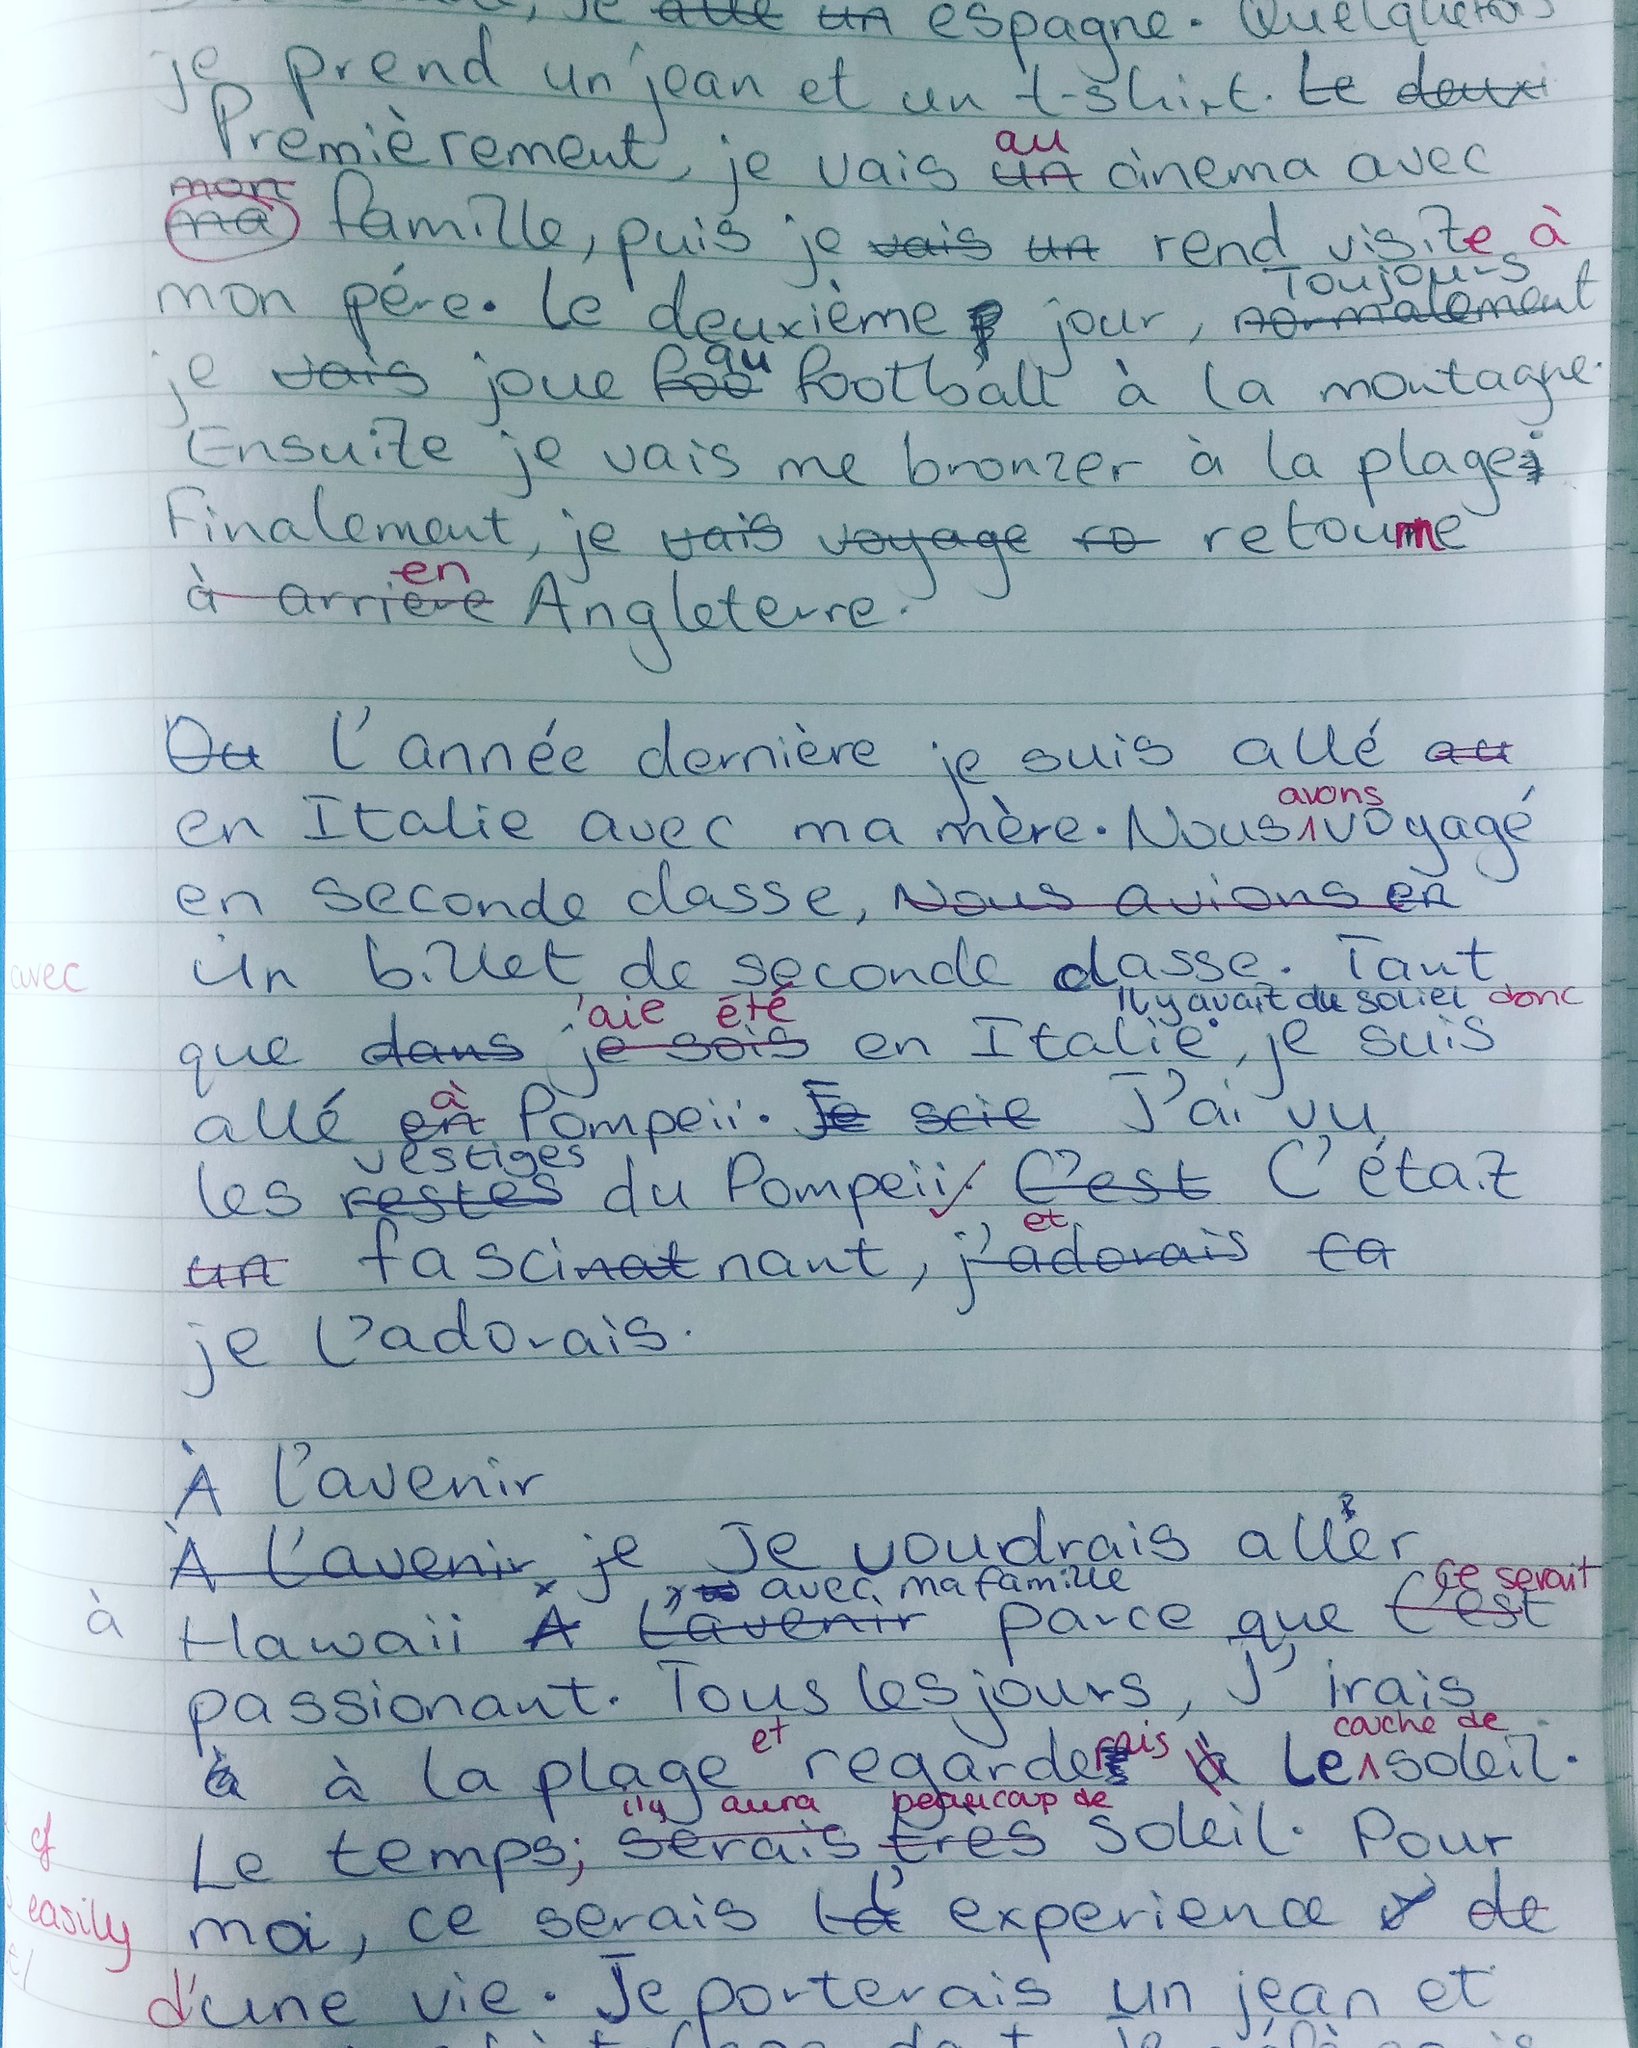 je un espagne. Quelquefois
je prend un jean et un t-shirt. Le deuxi
Premièrement, je vais un au cinema avec
mon
ma famille, puis je vais un rend visite à
mon pére. Le deuxième jour, normalement Toujours
je vais joue foo au football à la montagne.
Ensuite je vais me bronzer à la plage;
Finalement, je vais voyage ro retourne
à arrière en Angleterre.
Ou L'année dernière je suis allé au
en Italie avec ma mère. Nous avons voyagé
en seconde classe, Nous avions en
avec un billet de seconde classe. Tant
'aie été il y avait du soliel donc
que dans je sois en Italie, je suis
allé en à Pompeii. Je scie J'ai vu
les restes vestiges du Pompeii. C'est C'était
un fascinat nant, et j'adorais ca
je l'adorais.
À l'avenir
À l'avenir je Je voudrais aller
avec ma famille ce serait
à Hawaii À L'avenir parce que C'est
passionant. Tous les jours, J'irais
à à la plage et regarderais à le couche de soleil.
il y aura beaucoup de
cf Le temps; serais tres soleil. Pour
easily moi, ce serais la l' experience de
d'une vie. Je porterais un jean et